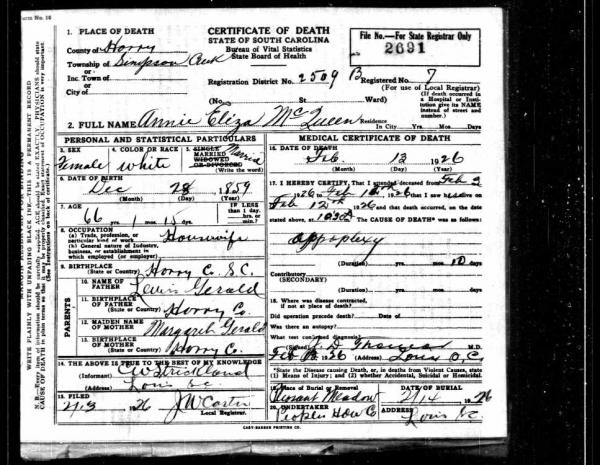 1. PLACE OF DEATH
County of Horry
Township of Simpson Creek
or
Inc. Town of
or
City of
CERTIFICATE OF DEATH
STATE OF SOUTH CAROLINA
Bureau of Vital Statistics
State Board of Health
File No.—For State Registrar Only
2691
Registration District No. 2509 B Registered No. 7
(For use of Local Registrar)
(No. St. Ward)
(If death occurred in a Hospital or Institution give its NAME instead of street and number.)
2. FULL NAME Annie Eliza McQueen Residence In City Yrs. Mos. Days
PERSONAL AND STATISTICAL PARTICULARS
3. SEX
Female
4. COLOR OR RACE
White
5. SINGLE MARRIED WIDOWED OR DIVORCED
Married
(Write the word)
6. DATE OF BIRTH
Dec 28 1859
(Month) (Day) (Year)
7. AGE
66 yrs. 1 mos. 15 ds.
IF LESS than 1 day, hrs. or min.
8. OCCUPATION
(a) Trade, profession, or particular kind of work Housewife
(b) General nature of Industry, business, or establishment in which employed (or employer)
9. BIRTHPLACE
(State or Country) Horry C. S.C.
PARENTS
10. NAME OF FATHER Gerald
11. BIRTHPLACE OF FATHER
(State or Country) Horry Co.
12. MAIDEN NAME OF MOTHER Margaret Gerald
13. BIRTHPLACE OF MOTHER
(State or Country) Horry Co.
14. THE ABOVE IS TRUE TO THE BEST OF MY KNOWLEDGE
(Informant) Strickland
(Address) Loris S.C.
15. FILED
2/13 1926 J W Carter
Local Registrar.
MEDICAL CERTIFICATE OF DEATH
16. DATE OF DEATH
Feb. 12 1926
(Month) (Day) (Year)
17. I HEREBY CERTIFY, That I attended deceased from Feb 3
1926 to Feb 1926 that I saw alive on
Feb 12th 1926 and that death occurred, on the date
stated above, at The CAUSE OF DEATH* was as follows:
Appoplexy
(Duration) yrs. mos. 10 ds.
Contributory
(SECONDARY)
(Duration) yrs. mos. ds.
18. Where was disease contracted, if not at place of death?
Did operation precede death? Date of
Was there an autopsy?
What test confirmed diagnosis?
(Signed) D. Thomas M.D.
Feb 1926 (Address) Loris S.C.
*State the Disease causing Death, or, in deaths from Violent Causes, state (1) Means of Injury; and (2) whether Accidental, Suicidal or Homicidal.
19. Place of Burial or Removal
Pleasant Meadow
DATE OF BURIAL
2/14 1926
20. UNDERTAKER
Peoples Hdw Co
ADDRESS
Loris S.C.